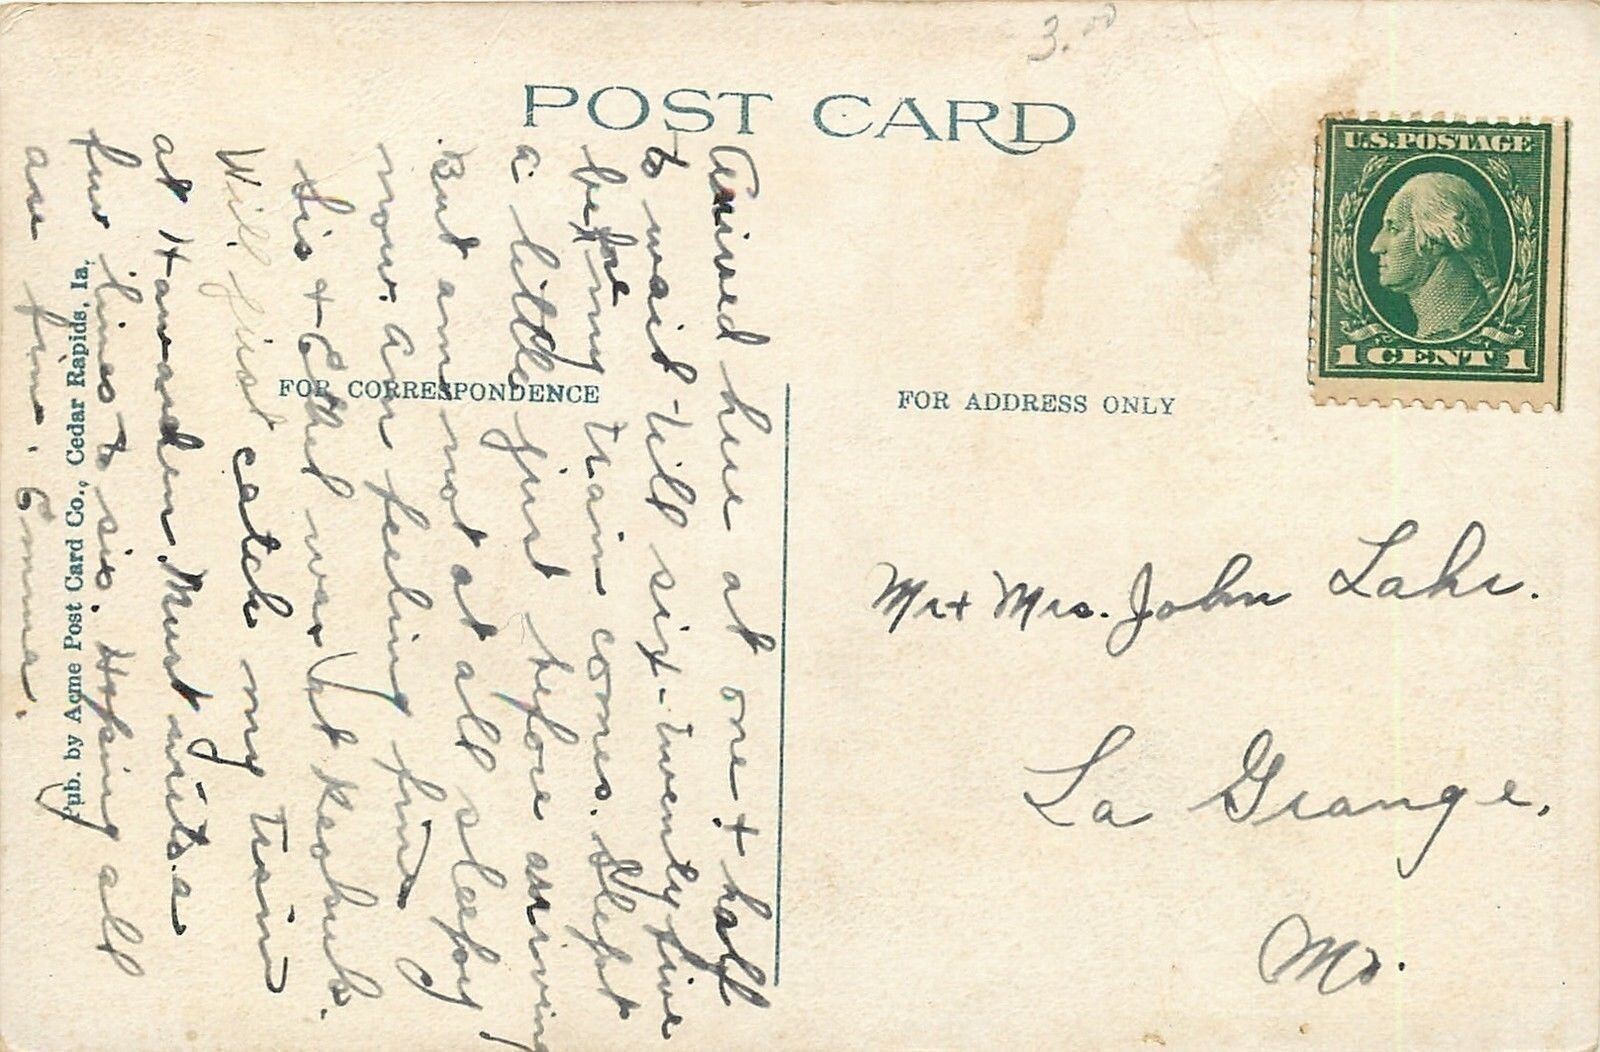 3.00
POST CARD
U.S. POSTAGE
1 CENT 1
FOR CORRESPONDENCE
FOR ADDRESS ONLY
Arrived here at one & half
to wait till six-twenty five
before my train comes. Slept
a little just before arriving
But am not at all sleepy
now. am feeling fine
Sis & Ethel was at Keokuk.
Will just catch my train
at Hawarden. Must write a
few lines to sis. Hoping all
are fine. Emma.
Pub. by Acme Post Card Co., Cedar Rapids, Ia.
Mr & Mrs. John Lahr.
La Grange,
Mo.